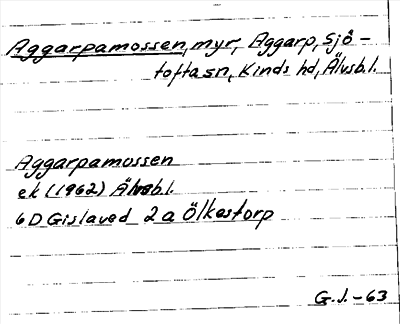 Aggarpamossen, myr, Aggarp, Sjö-
tofta sn, Kinds hd, Älvsb.l.
Aggarpamossen
ek (1962) Älvsb.l.
6D Gislaved 2a Ölkestorp
G.J.-63